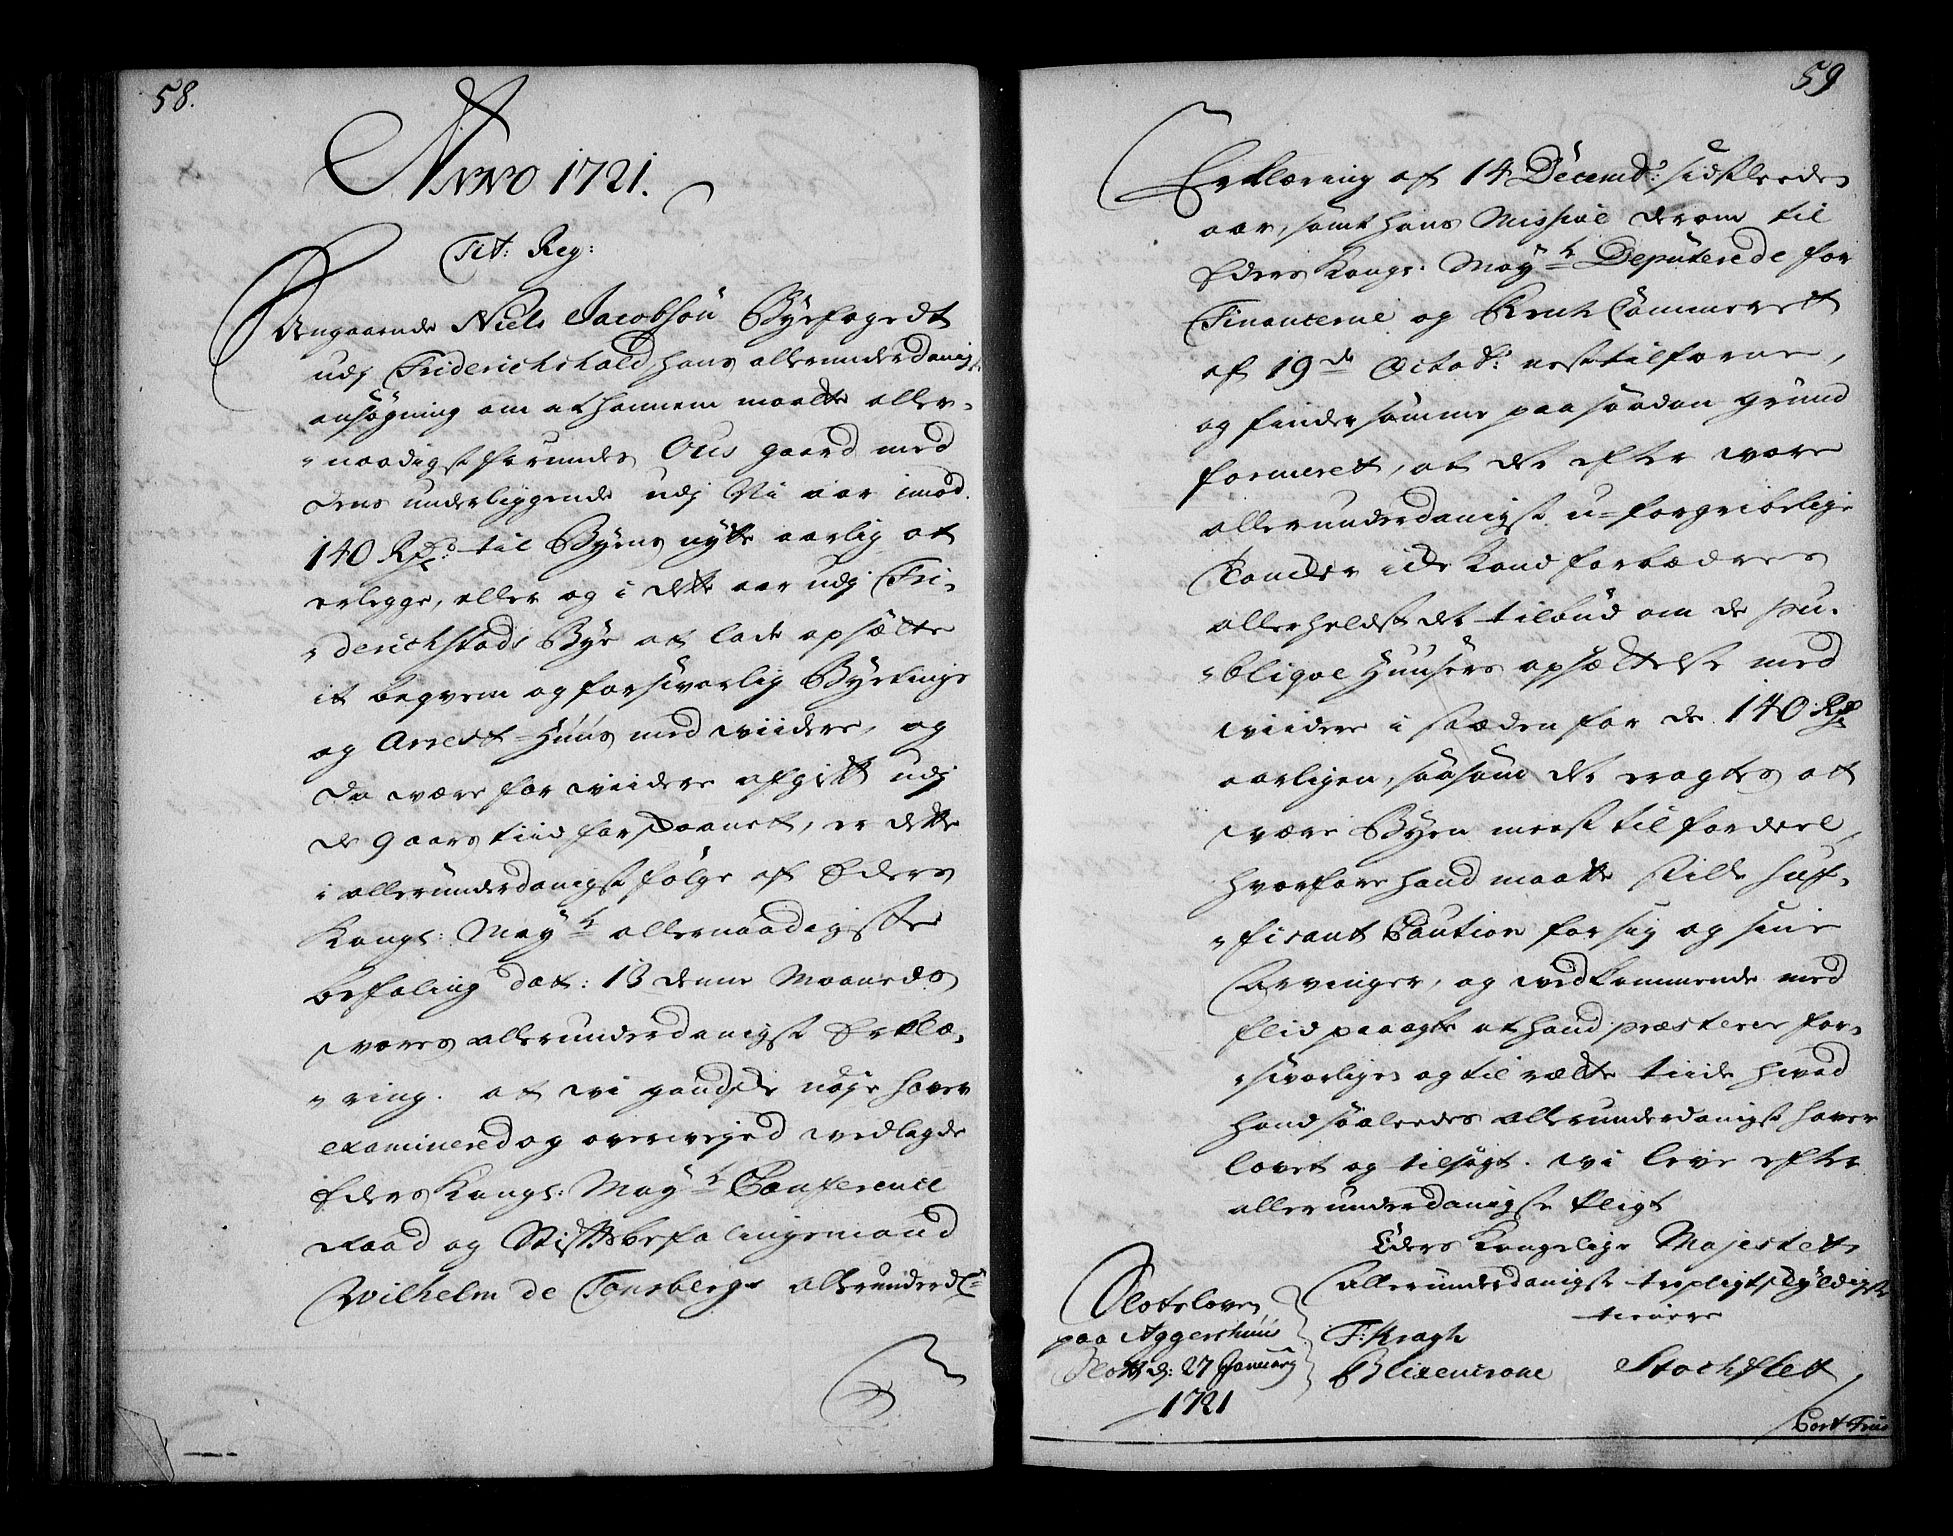 58.
Anno 1721.
Tit: Reg:
Angaaende Niels Jacobsøn Byefogedt
udj Friderichshald, hans allerunderdanigst
ansøgning om at hannem maatte aller-
naadigst forundes Ous gaard med
dens underliggende udj Ni aar imod
140 Rd: til Byens nytte aarlig at
erlegge, eller og i dette aar udj Fri-
derichstads Bye at lade opsætte
it beqvem og forsvarlig Byetings
og Arrest-Huus med viidere, og
da være for viidere afgift udj
de 9 aars tiid forskaanet, er dette
i allerunderdanigst følge af Eders
Kongl: May:ts allernaadigste
befaling dat: 13 denne Maaneds
vores allerunderdanigst Erklæ-
ring. at vi gandske nøje haver
examinered og overvejed vedlagde
Eders Kongl: May:ts Conference
Raad og Stiftbefalingsmand
Wilhelm de Tonsbergs allerunderd:
59
Erklæring af 14 Decemb: sidstleedes
aar, samt hans Missive derom til
Eders Kongl: May:ts Deputerede for
Financerne og Rente Cammeret
af 19de Octob: nest tilforne,
og finder samme paa saadan grund
formeret, at det efter vore
allerunderdanigst u-forgribelige
Tancker icke kand forbædres
allerheldst det tilbud om de pu-
bliqve Huusers opsættelse med
viidere i stæden for de 140 Rd
aarligen, saasom det eragtes at
være Byen meest til fordeel,
hvorfore hand maatte stille suf-
fisant Caution for sig og sine
Arvinger, og vedkommende med
flid paaagte at hand præsterer for-
svarligen og til rætte tiide hvad
hand saaleedes allerunderdanigst haver
lovet og tilsagt. Vi leve efter
allerunderdanigste Pligt
Eders Kongelige Majestets
allerunderdanigste troepligtskyldigste
tienere
Slotsloven
paa Aggershuus
Slott d: 27 January
1721
F: Kragh
Blixencrone Stochflett
Cort